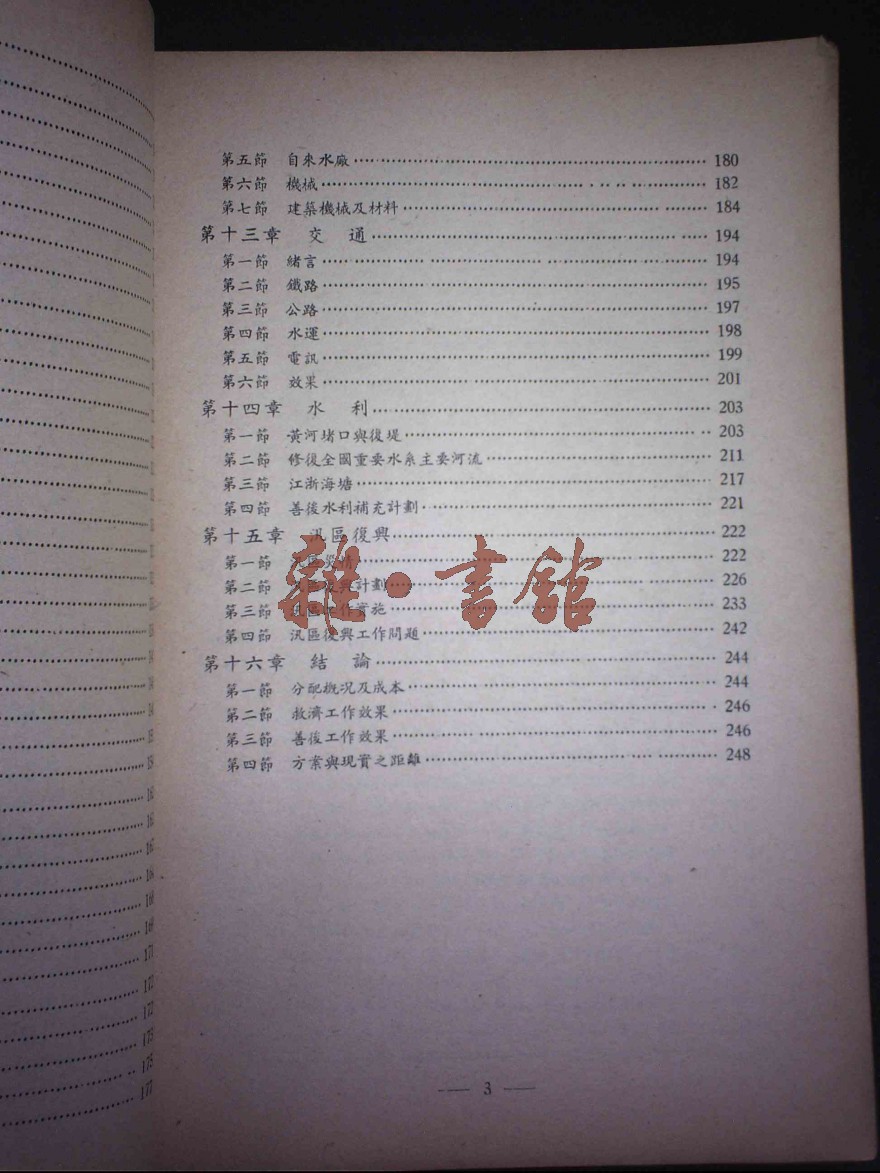 第五節　自來水廠 180
第六節　機械 182
第七節　建築機械及材料 184
第十三章　交　通 194
第一節　緒言 194
第二節　鐵路 195
第三節　公路 197
第四節　水運 198
第五節　電訊 199
第六節　效果 201
第十四章　水　利 203
第一節　黃河堵口與復堤 203
第二節　修復全國重要水系主要河流 211
第三節　江浙海塘 217
第四節　善後水利補充計劃 221
第十五章　汎區復興 222
第一節　汎區災情 222
第二節　計劃 226
第三節　汎區工作實施 233
第四節　汎區復興工作問題 242
第十六章　結　論 244
第一節　分配概況及成本 244
第二節　救濟工作效果 246
第三節　善後工作效果 246
第四節　方案與現實之距離 248
雜·書館
— 3 —
171
172
173
175
177